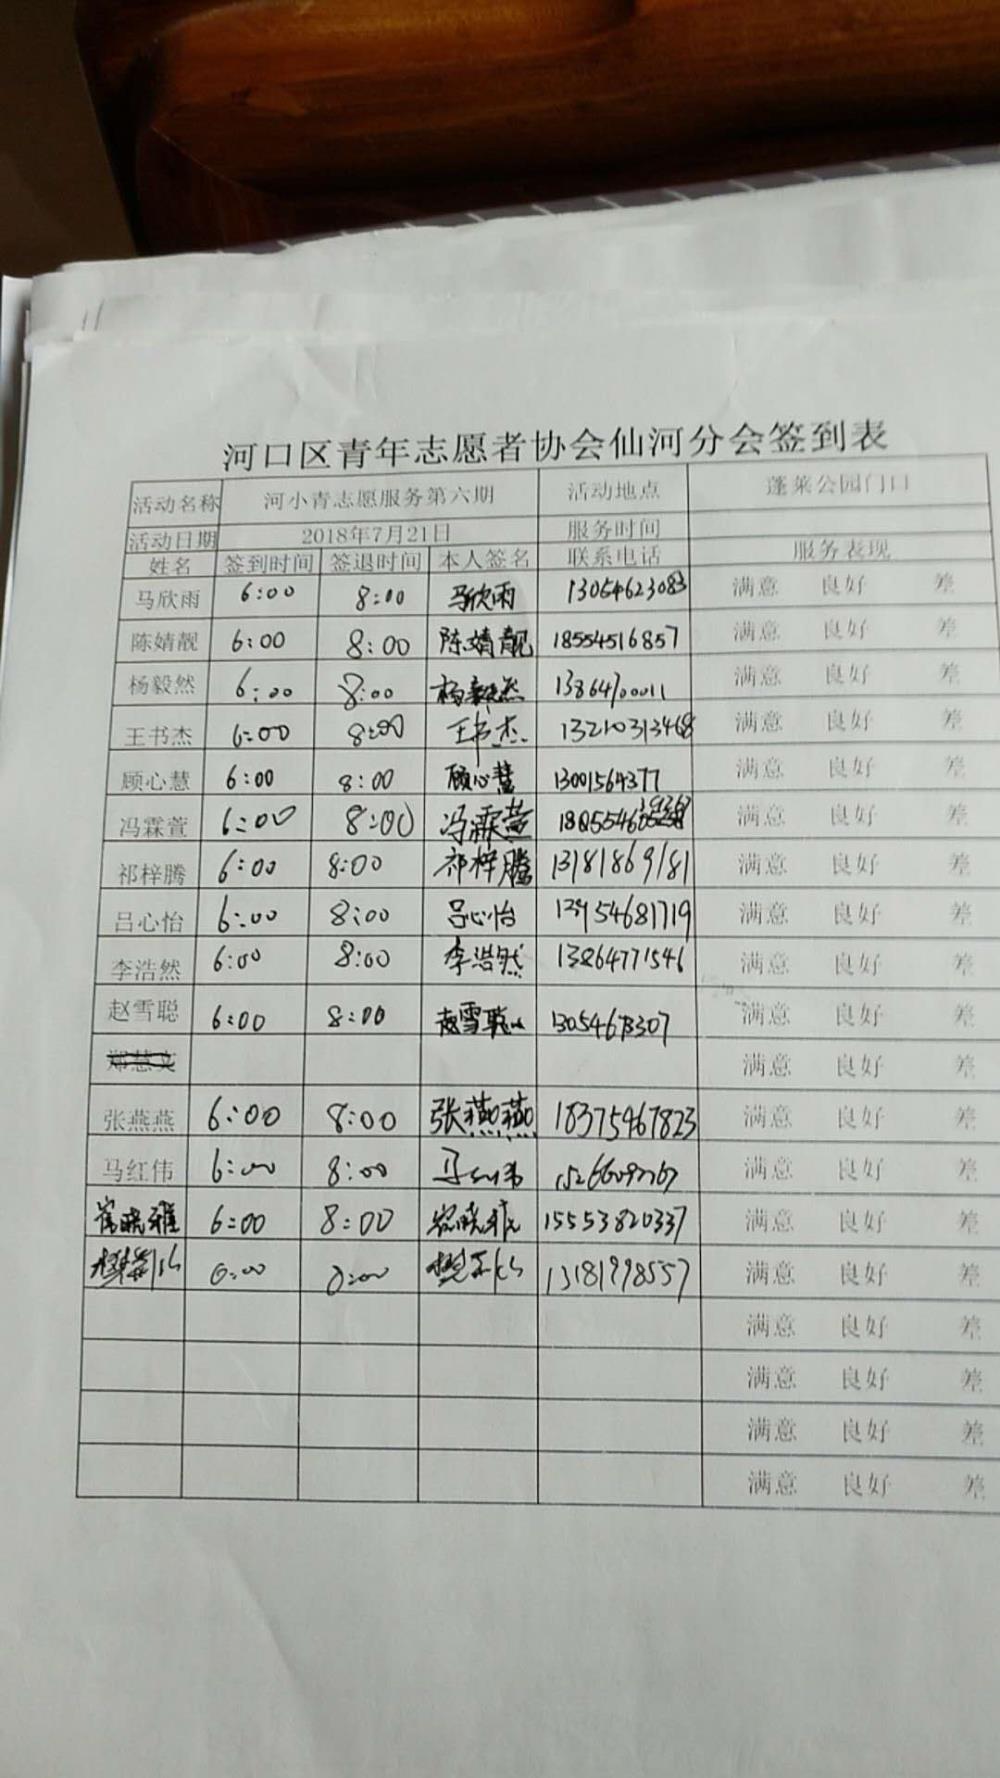 河口区青年志愿者协会仙河分会签到表
活动名称 河小青志愿服务第六期 活动地点 蓬莱公园门口
活动日期 2018年7月21日 服务时间
姓名 签到时间 签退时间 本人签名 联系电话 服务表现
马欣雨 6:00 8:00 马欣雨 13054623083 满意 良好 差
陈婧靓 6:00 8:00 陈婧靓 18554516857 满意 良好 差
杨毅然 6:00 8:00 杨毅然 13864700011 满意 良好 差
王书杰 6:00 8:00 王书杰 13210313468 满意 良好 差
顾心慧 6:00 8:00 顾心慧 13001564377 满意 良好 差
冯霖萱 6:00 8:00 冯霖萱 满意 良好 差
祁梓腾 6:00 8:00 祁梓腾 13181869181 满意 良好 差
吕心怡 6:00 8:00 吕心怡 13954681719 满意 良好 差
李浩然 6:00 8:00 李浩然 13864771546 满意 良好 差
赵雪聪 6:00 8:00 赵雪聪 满意 良好 差
郑慧文 满意 良好 差
张燕燕 6:00 8:00 张燕燕 18375467823 满意 良好 差
马红伟 6:00 8:00 马红伟 满意 良好 差
崔晓雅 6:00 8:00 15553820337 满意 良好 差
13181998557 满意 良好 差
满意 良好 差
满意 良好 差
满意 良好 差
满意 良好 差